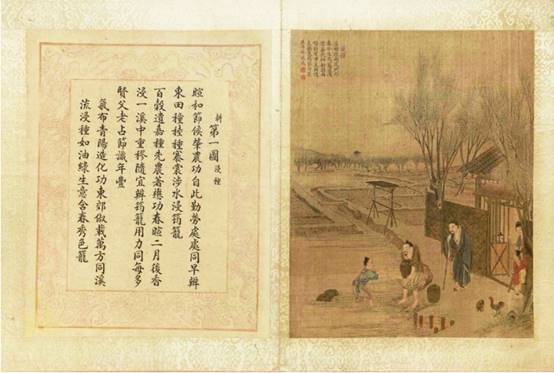 耕第一圖 浸種
暄和節候肇農功自此勤勞處處同早辦
東田穜稑種褰裳涉水浸筠籠
百穀遺嘉種先農著懋功春暄二月後香
浸一溪中重穋隨宜辦筠籠用力同每多
賢父老占節識年豐
氣布青陽造化功東郊俶載萬方同溪
流浸種如油綠生意含春秀色籠